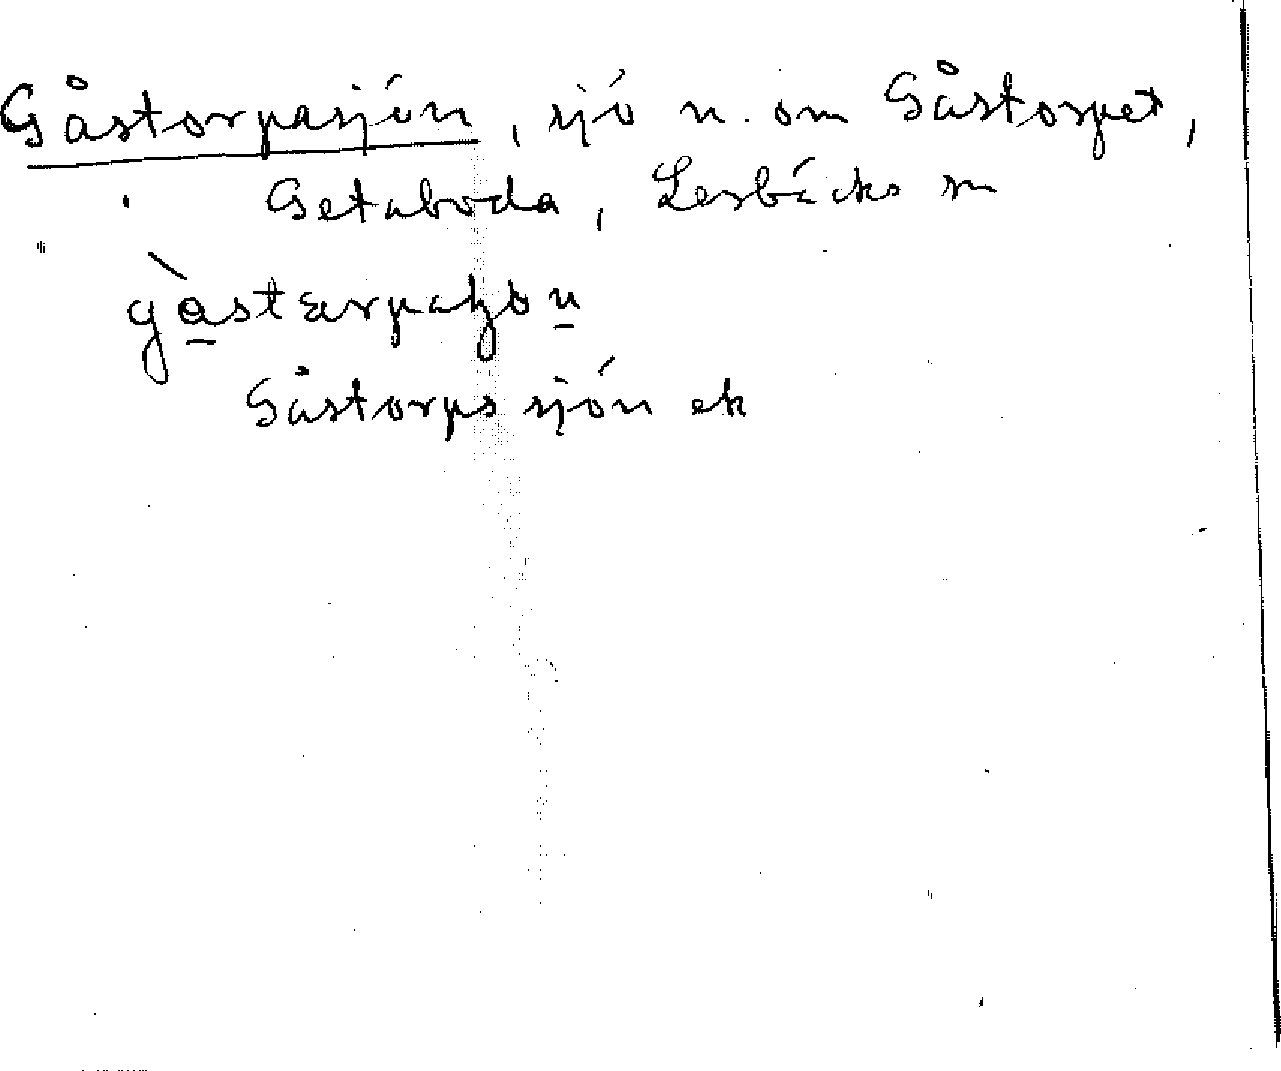 Gåstorpasjön, sjö n. om Gåstorpet,
Getaboda, Lerbäcks sn
Gåstorps sjön ek